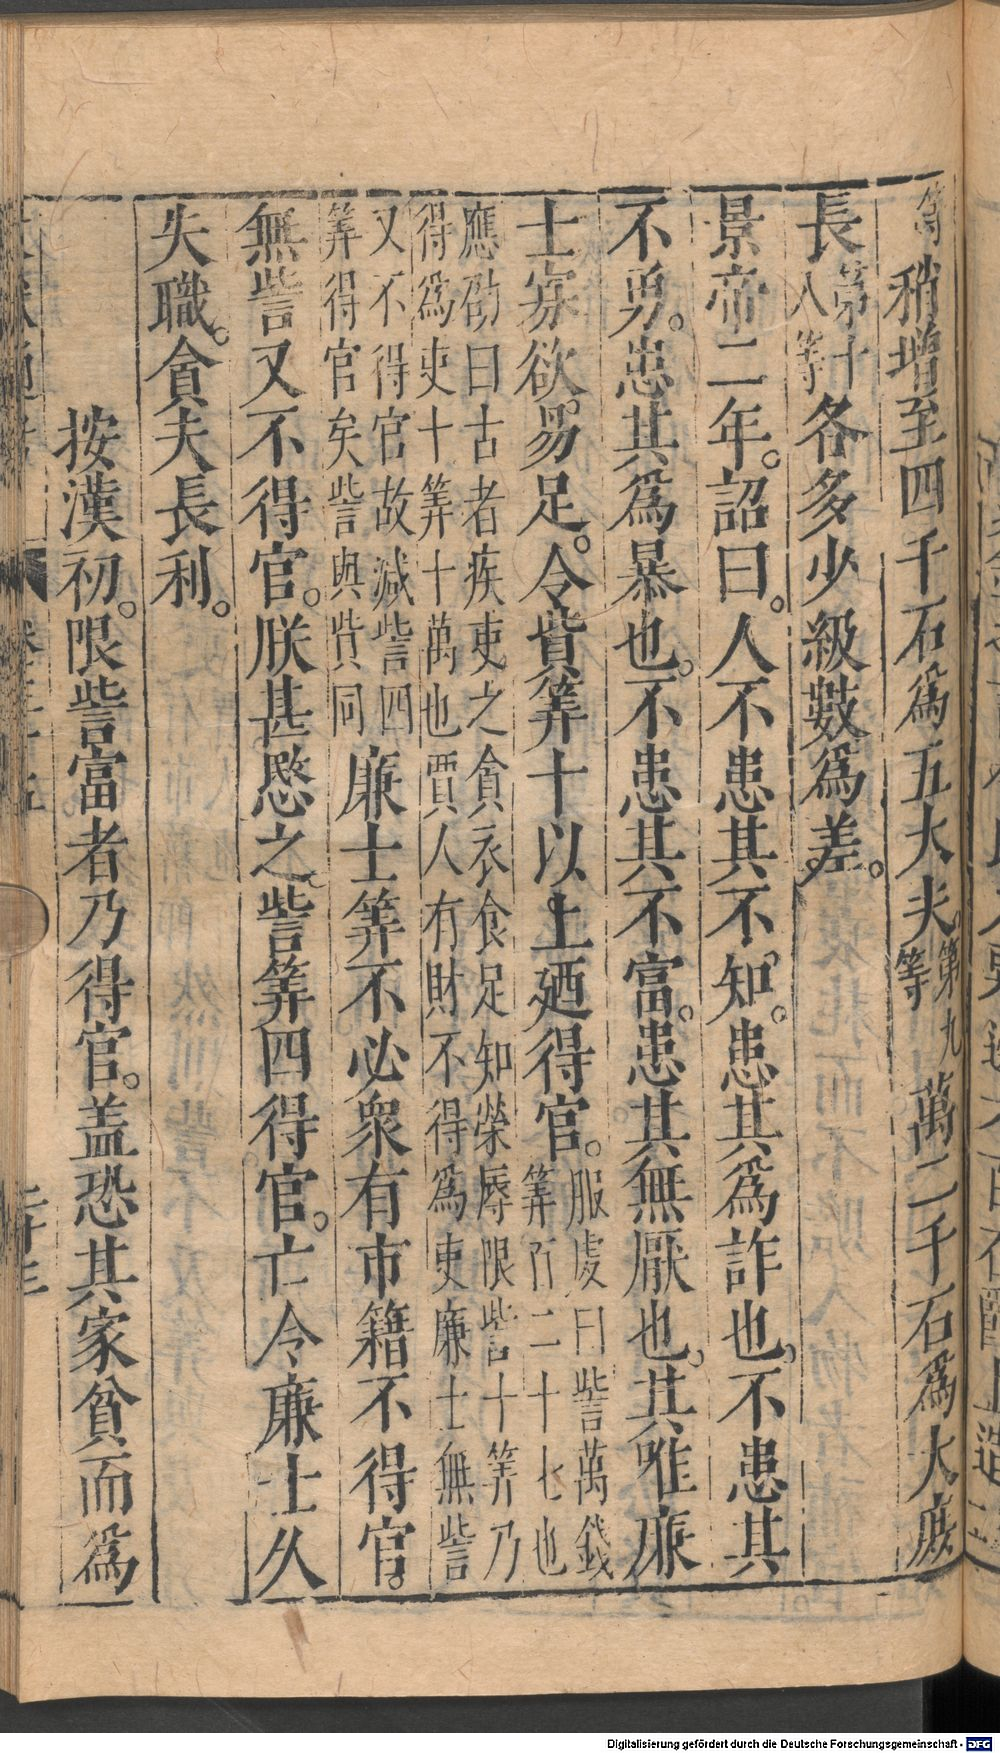 等稍增至四千石爲五大夫第九等萬二千石爲大庶
長第十八等各多少級數爲差。
景帝二年。詔曰。人不患其不知。患其爲詐也。不患其
不勇。患其爲暴也。不患其不富。患其無厭也。其唯廉
士寡欲。易足。今貲筭十以上廼得官。服虔曰訾萬錢筭百二十七也
應劭曰古者疾吏之貪衣食足知榮辱限訾十筭乃
得爲吏十筭十萬也賈人有財不得爲吏廉士無訾
又不得官故減訾四
筭得官矣訾與貲同
廉士筭不必衆有市籍不得官。
無訾又不得官。朕甚愍之。訾筭四得官。亡令廉士久
失職。貪夫長利。
按漢初。限訾富者乃得官。蓋恐其家貧而爲
Digitalisierung gefördert durch die Deutsche Forschungsgemeinschaft - DFG